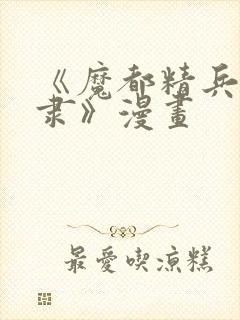 《魔都精兵
隶》漫畫
最愛喫涼糕